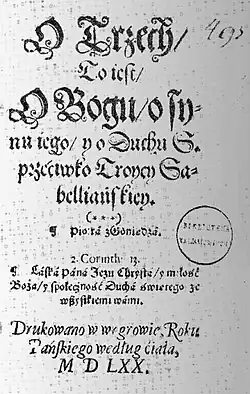 O Trzech/
To iest/
O Bogu/ o sy-
nu iego/ y o Duchu S.
przeciwko Troycy Sa-
belliańskiey.
(***)
¶ Piotra z Goniądza.
2. Corinth: 13.
¶ Láská Páná Jezu Chrystá/ y miłość
Boża/ y społeczność Duchá świętego ze
wszystkiemi wámi.
Drukowano w Węgrowie, Roku
Páńskiego według ćiáłá,
M D LXX.
495
BIBLIOTEKA